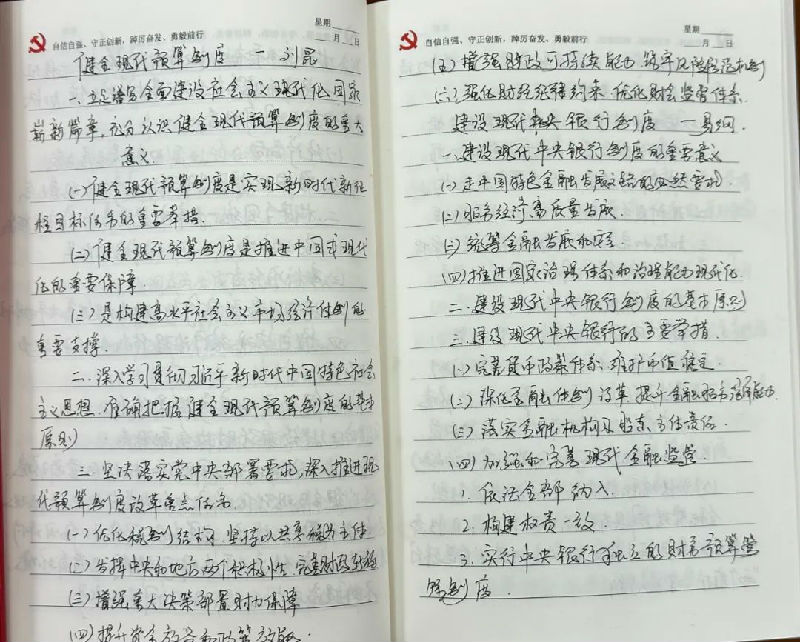 星期
自信自强、守正创新，踔厉奋发、勇毅前行
月 日
健全现代预算制度 — 刘昆
一、立足谱写全面建设社会主义现代化国家
崭新篇章，充分认识健全现代预算制度的重大
意义
(一)健全现代预算制度是实现新时代新征
程目标任务的重要举措.
(二)健全现代预算制度是推进中国式现代
化的重要保障.
(三)是构建高水平社会主义市场经济体制的
重要支撑.
二.深入学习贯彻习近平新时代中国特色社会
主义思想.准确把握健全现代预算制度的基本
原则
三.坚决落实党中央部署要求,深入推进现
代预算制度改革重点任务
(一)优化税制结构 坚持以共享税为主体
(二)发挥中央和地方两个积极性 完善财政
(三)增强重大决策部署财力保障
(四)提升资金效益和政策效能.
星期
自信自强、守正创新，踔厉奋发、勇毅前行
月 日
(五)增强财政可持续能力 筑牢风险防范机制
(六)强化财经纪律约束 优化财会监督体系.
建设现代中央银行制度 — 易纲.
一.建设现代中央银行制度的重要意义
(一)走中国特色金融发展之路的必然要求.
(二)服务经济高质量发展.
(三)统筹金融发展和安全
(四)推进国家治理体系和治理能力现代化
二.建设现代中央银行制度的基本原则
三.建设现代中央银行的主要举措.
(一)完善货币政策体系 维护币值稳定.
(二)深化金融体制改革 提升金融服务能力.
(三)落实金融机构及股东主体责任.
(四)加强和完善现代金融监管
1.依法全部纳入.
2.构建权责一致.
3.实行中央银行独立的财务预算管
理制度.